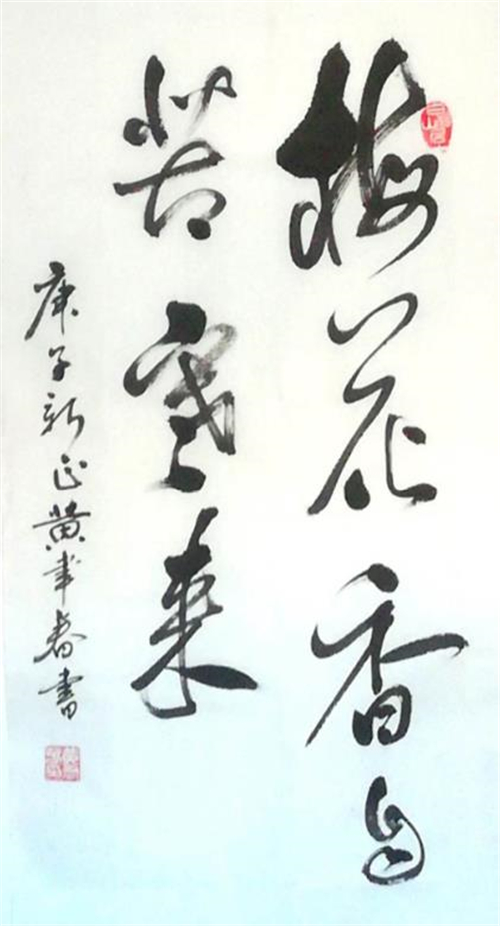 梅花香自
苦寒来
庚子新正黄聿春书